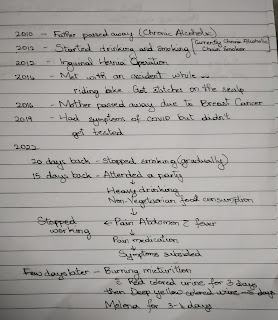 2010 - Father passed away (Chronic Alcoholic)
2012 - Started drinking and smoking (Currently Chronic Alcoholic, Chain Smoker)
2012 - Inguinal Hernia Operation
2014 - Met with an accident while
riding bike. Got stitches on the scalp
2016 - Mother passed away due to Breast Cancer
2019 - Had symptoms of covid but didn't
get tested
2022
20 days back - Stopped smoking (gradually)
15 days back - Attended a party
↓
Heavy drinking
Non-Vegetarian food consumption
↓
Stopped working ← Pain Abdomen c̄ fever
↓
Pain medication
↓
Symptoms subsided
Few days later - Burning micturition
c̄ Red colored urine for 3 days
then Deep yellow colored urine - days
Melena for 3-4 days